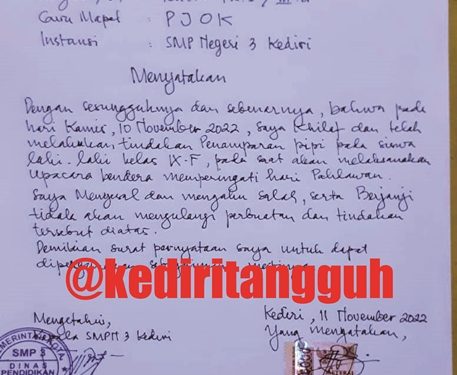 Guru Mapel : P J O K
Instansi : SMP Negeri 3 Kediri
Menyatakan
Dengan sesungguhnya dan sebenarnya, bahwa pada
hari Kamis, 10 November 2022, saya Khilaf dan telah
melakukan tindakan Penamparan pipi pada siswa
laki-laki kelas IX-F, pada saat akan melaksanakan
Upacara bendera memperingati hari Pahlawan.
Saya Menyesal dan mengakui Salah, serta Berjanji
tidak akan mengulangi perbuatan dan tindakan
tersebut diatas.
Demikian surat pernyataan saya untuk dapat
@kediritangguh
Mengetahui,
Kediri, 11 November 2022
SMPN 3 Kediri
Yang menyatakan,
SMP 3
DINAS
PENDIDIKAN